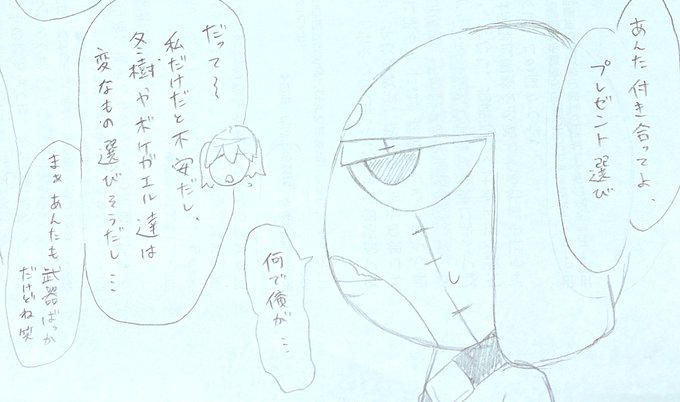 あんた付き合ってよ、
プレゼント選び
何で俺が…
だって〜
私だけだと不安だし、
冬樹やボケガエル達は
変なもの選びそうだし…
まぁあんたも武器ばっか
だけどね笑